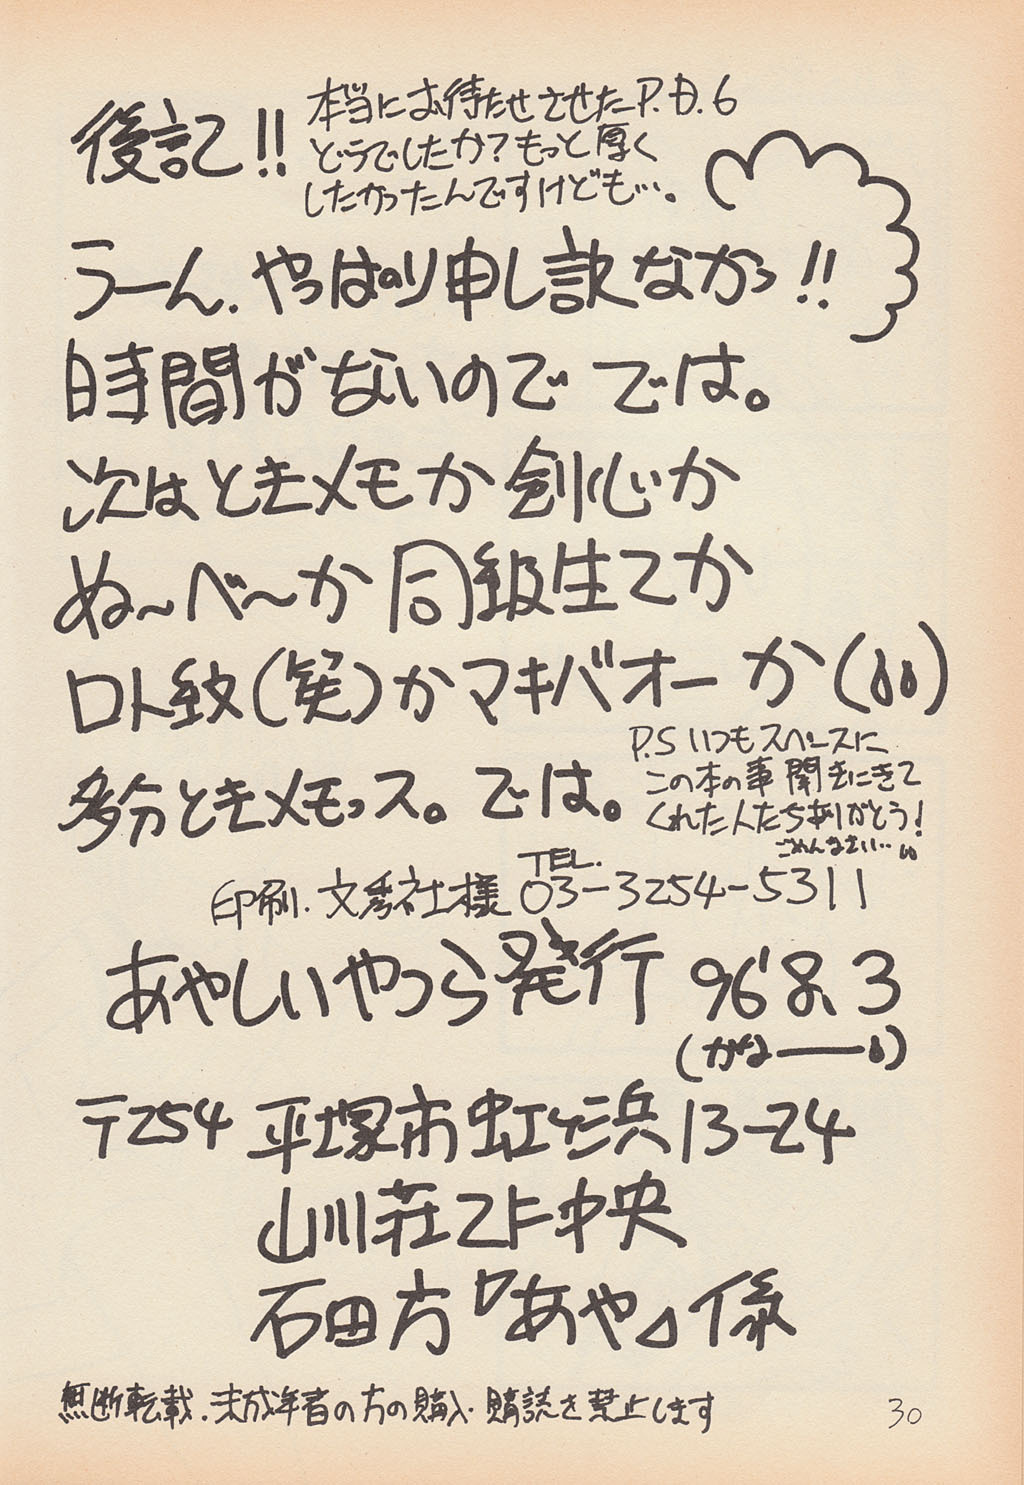 後記!!
本当にお待たせさせたP.D.6
どうでしたか?もっと厚く
したかったんですけども…。
うーん、やっぱり申し訳なかっ!!
時間がないので では。
次はときメモか剣心か
ぬ〜べ〜か同級生2か
ロト紋(笑)かマキバオーか
多分ときメモっス。では。
P.S いつもスペースに
この本の事聞きにきて
くれた人たちありがとう!
ごめんなさい…
印刷.文秀社様 TEL. 03-3254-5311
あやしいやつら発行 96'8、3
(かなー)
〒254 平塚市虹ヶ浜13-24
山川荘2F中央
石田方『あや』係
無断転載.未成年者の方の購入.購読を禁止します
30